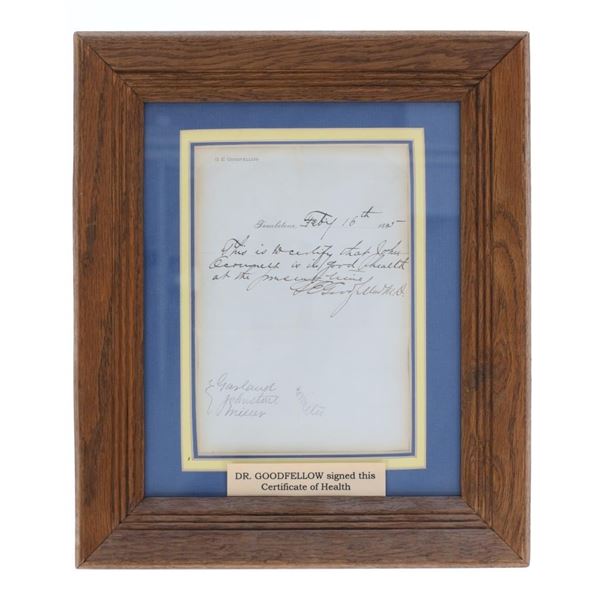 G E GOODFELLOW
Tombstone, Feby 16th 1885
This is to certify that John
is in good health
at the present time
G E Goodfellow M.D.
Garland
Johnston
Miller
DR. GOODFELLOW signed this
Certificate of Health